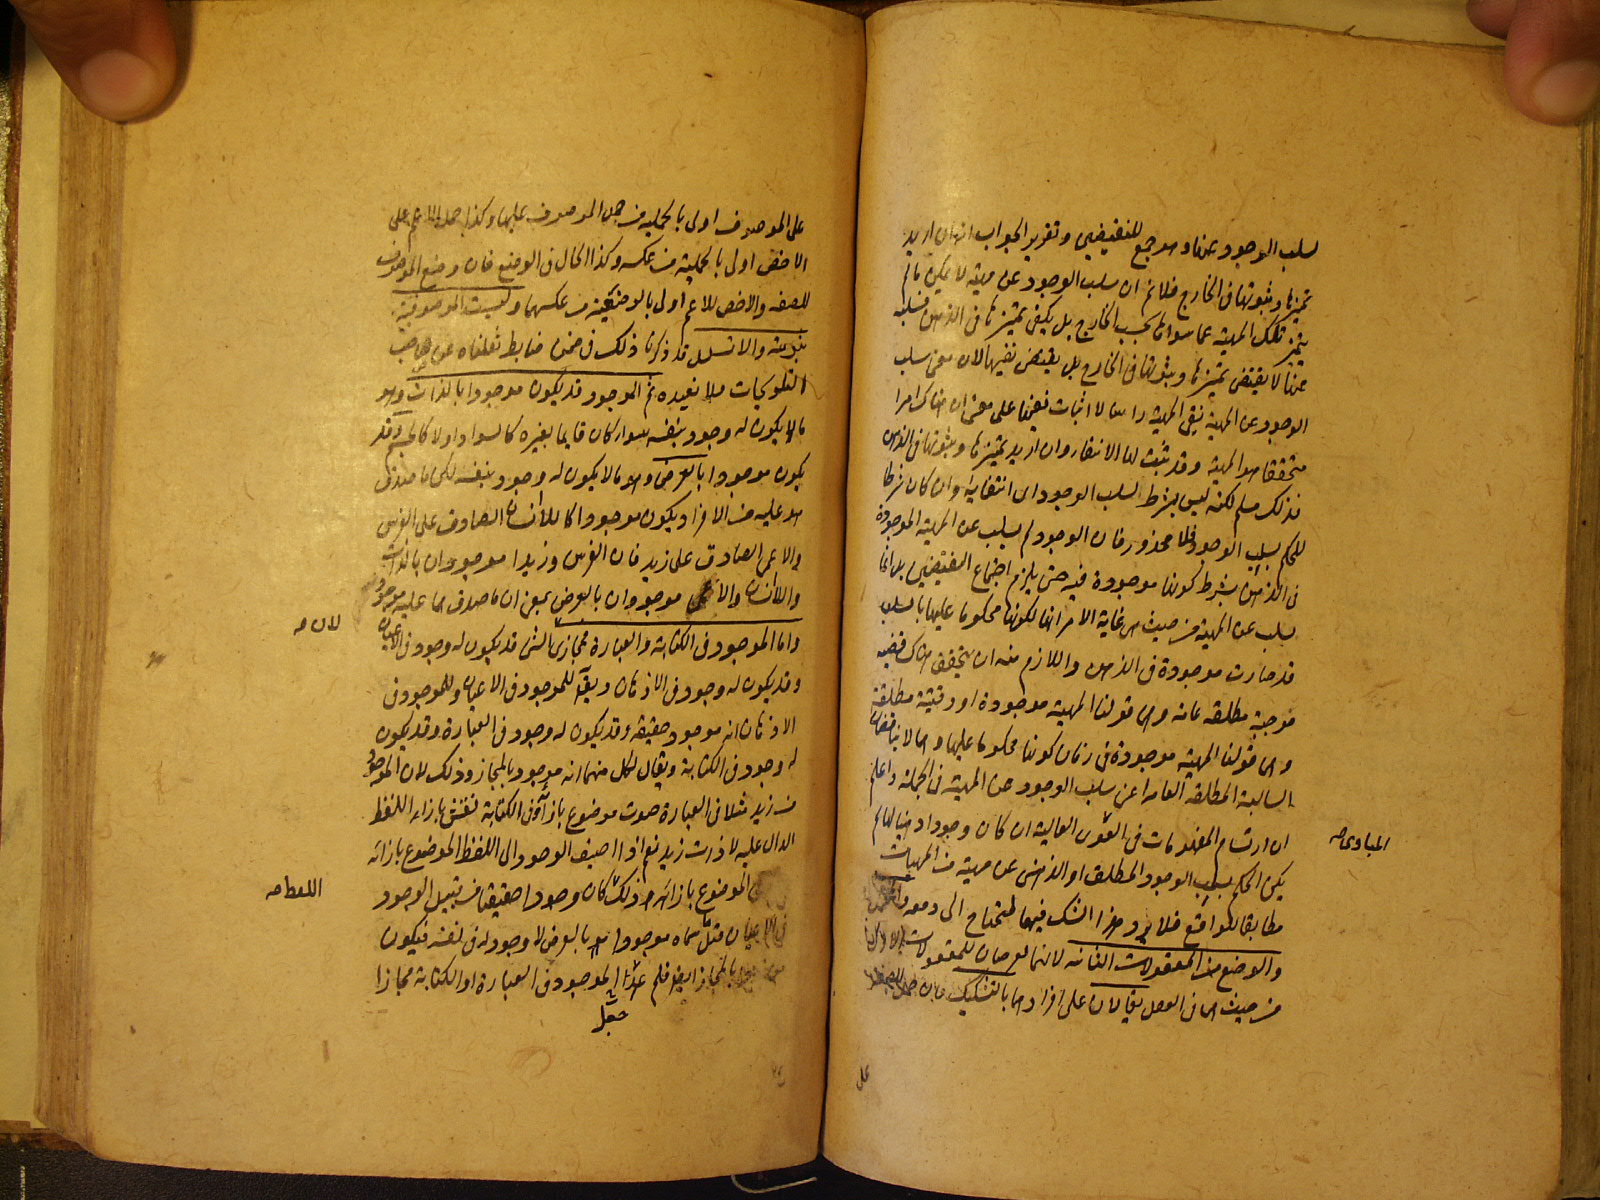 لسلب الوجود عنها وهو جمع للنقيضين وتقرير الجواب انه ان اريد
تميزها وثبوتها فى الخارج فلا نم ان سلب الوجود عن مهية لا يمكن ما لم
يتميز تلك المهية عما سواها بحسب الخارج بل يكفى تميزها فى الذهن فسلبه
عنها لا يقتضى تميزها وثبوتها فى الخارج بل يقتضى نفيها لان معنى سلب
الوجود عن المهية نفى المهية راسا لا اثبات نفيها على معنى ان هناك امرا
متحققا هو المهية وقد ثبت لها الانتفاء وان اريد تميزها وثبوتها فى الذهن
فذلك مسلم لكنه ليس بشرط لسلب الوجود اى انتفائه وان كان شرطا
للحكم بسلب الوجود فلا محذور فان الوجود لم يسلب عن المهية الموجودة
فى الذهن بشرط كونها موجودة فيه حتى يلزم اجتماع النقيضين بل انما
سلب عن المهية من حيث هى غاية الامر انها لكونها محكوما عليها بالسلب
قد صارت موجودة فى الذهن واللازم منه ان يتحقق هناك قضية
موجبة مطلقة عامة وهى قولنا المهية موجودة او وقتية مطلقة
وهى قولنا المهية موجودة فى زمان كونها محكوما عليها وهى لا يناقضها
السالبة المطلقة العامة اعنى سلب الوجود عن المهية فى الجملة واعلم
ان ارتسام المفهومات فى القوى العالية ان كان وجودا ذهنيا لها لم
المبادى صح
يكن الحكم بسلب الوجود المطلق او الذهنى عن مهية من المهيات
مطابقا للواقع فلا يرد هذا الشك فيها ليحتاج الى دفعه والحمل
والوضع من المعقولات الثانية لانهما يعرضان للمعقولات الاولى
من حيث هى فى العقل يقالان على افرادهما بالتشكيك فان حمل الصفة
على
على الموصوف اولى بالحملية من حمل الموصوف عليها وكذا حمل الاعم على
الاخص اولى بالحملية من عكسه وكذا الحال فى الوضع فان وضع الموصوف
للصفه والاخص للاعم اولى بالوضعية من عكسهما وليست الموصوفية
ثبوتية والا تسلسل قد ذكرنا ذلك فى ضمن ضابط نقلناه عن صاحب
التلويحات فلا نعيده ثم الموجود قد يكون موجودا بالذات وهو
ما يكون له وجود بنفسه سواء كان قايما بغيره كالسواد اولا كالجسم وقد
يكون موجودا بالعرض وهو ما لا يكون له وجود بنفسه لكن ما صدق
هو عليه من الافراد يكون موجودا كاللاانسان الصادق على الفرس
والاعمى الصادق على زيد فان الفرس وزيدا موجودان بالذات
واللاانسان والاعمى موجودان بالعرض بمعنى ان ما صدق هما عليه موجود
لان صه
واما الموجود فى الكتابة والعبارة فمجازى الشى قد يكون له وجود فى الاعيان
وقد يكون له وجود فى الاذهان ويقال للموجود فى الاعيان وللموجود فى
الاذهان انه موجود حقيقة وقد يكون له وجود فى العبارة وقد يكون
له وجود فى الكتابة ويقال لكل منهما انه موجود بالمجاز وذلك لان الموجود
من زيد مثلا فى العبارة صوت موضوع بازائه وفى الكتابة نقش بازاء اللفظ
الدال عليه لا ذات زيد نعم اذا اضيف الوجود الى اللفظ الموضوع بازائه
اللفظ صه
الموضوع بازاء ذلك كان وجودا حقيقيا من قبيل الوجود
فى الاعيان مثل سماه موجودا بالعرض لا وجود له فى نفسه فيكون
موجودا بالمجاز ايضا فلم عد الموجود فى العبارة او الكتابة مجازا
جعل